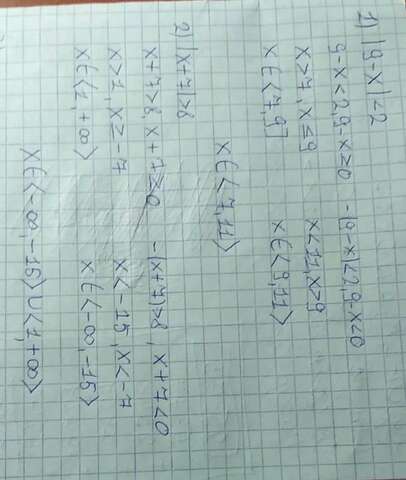 1) |9-x|<2
9-x<2, 9-x≥0 -(9-x)<2, 9-x<0
x>7, x≤9 x<11, x>9
x∈<7,9] x∈<9,11>
x∈<7,11>
2) |x+7|>8
x+7>8, x+7≥0 -(x+7)>8, x+7<0
x>1, x≥-7 x<-15, x<-7
x∈<1,+∞> x∈<-∞,-15>
x∈<-∞,-15>∪<1,+∞>